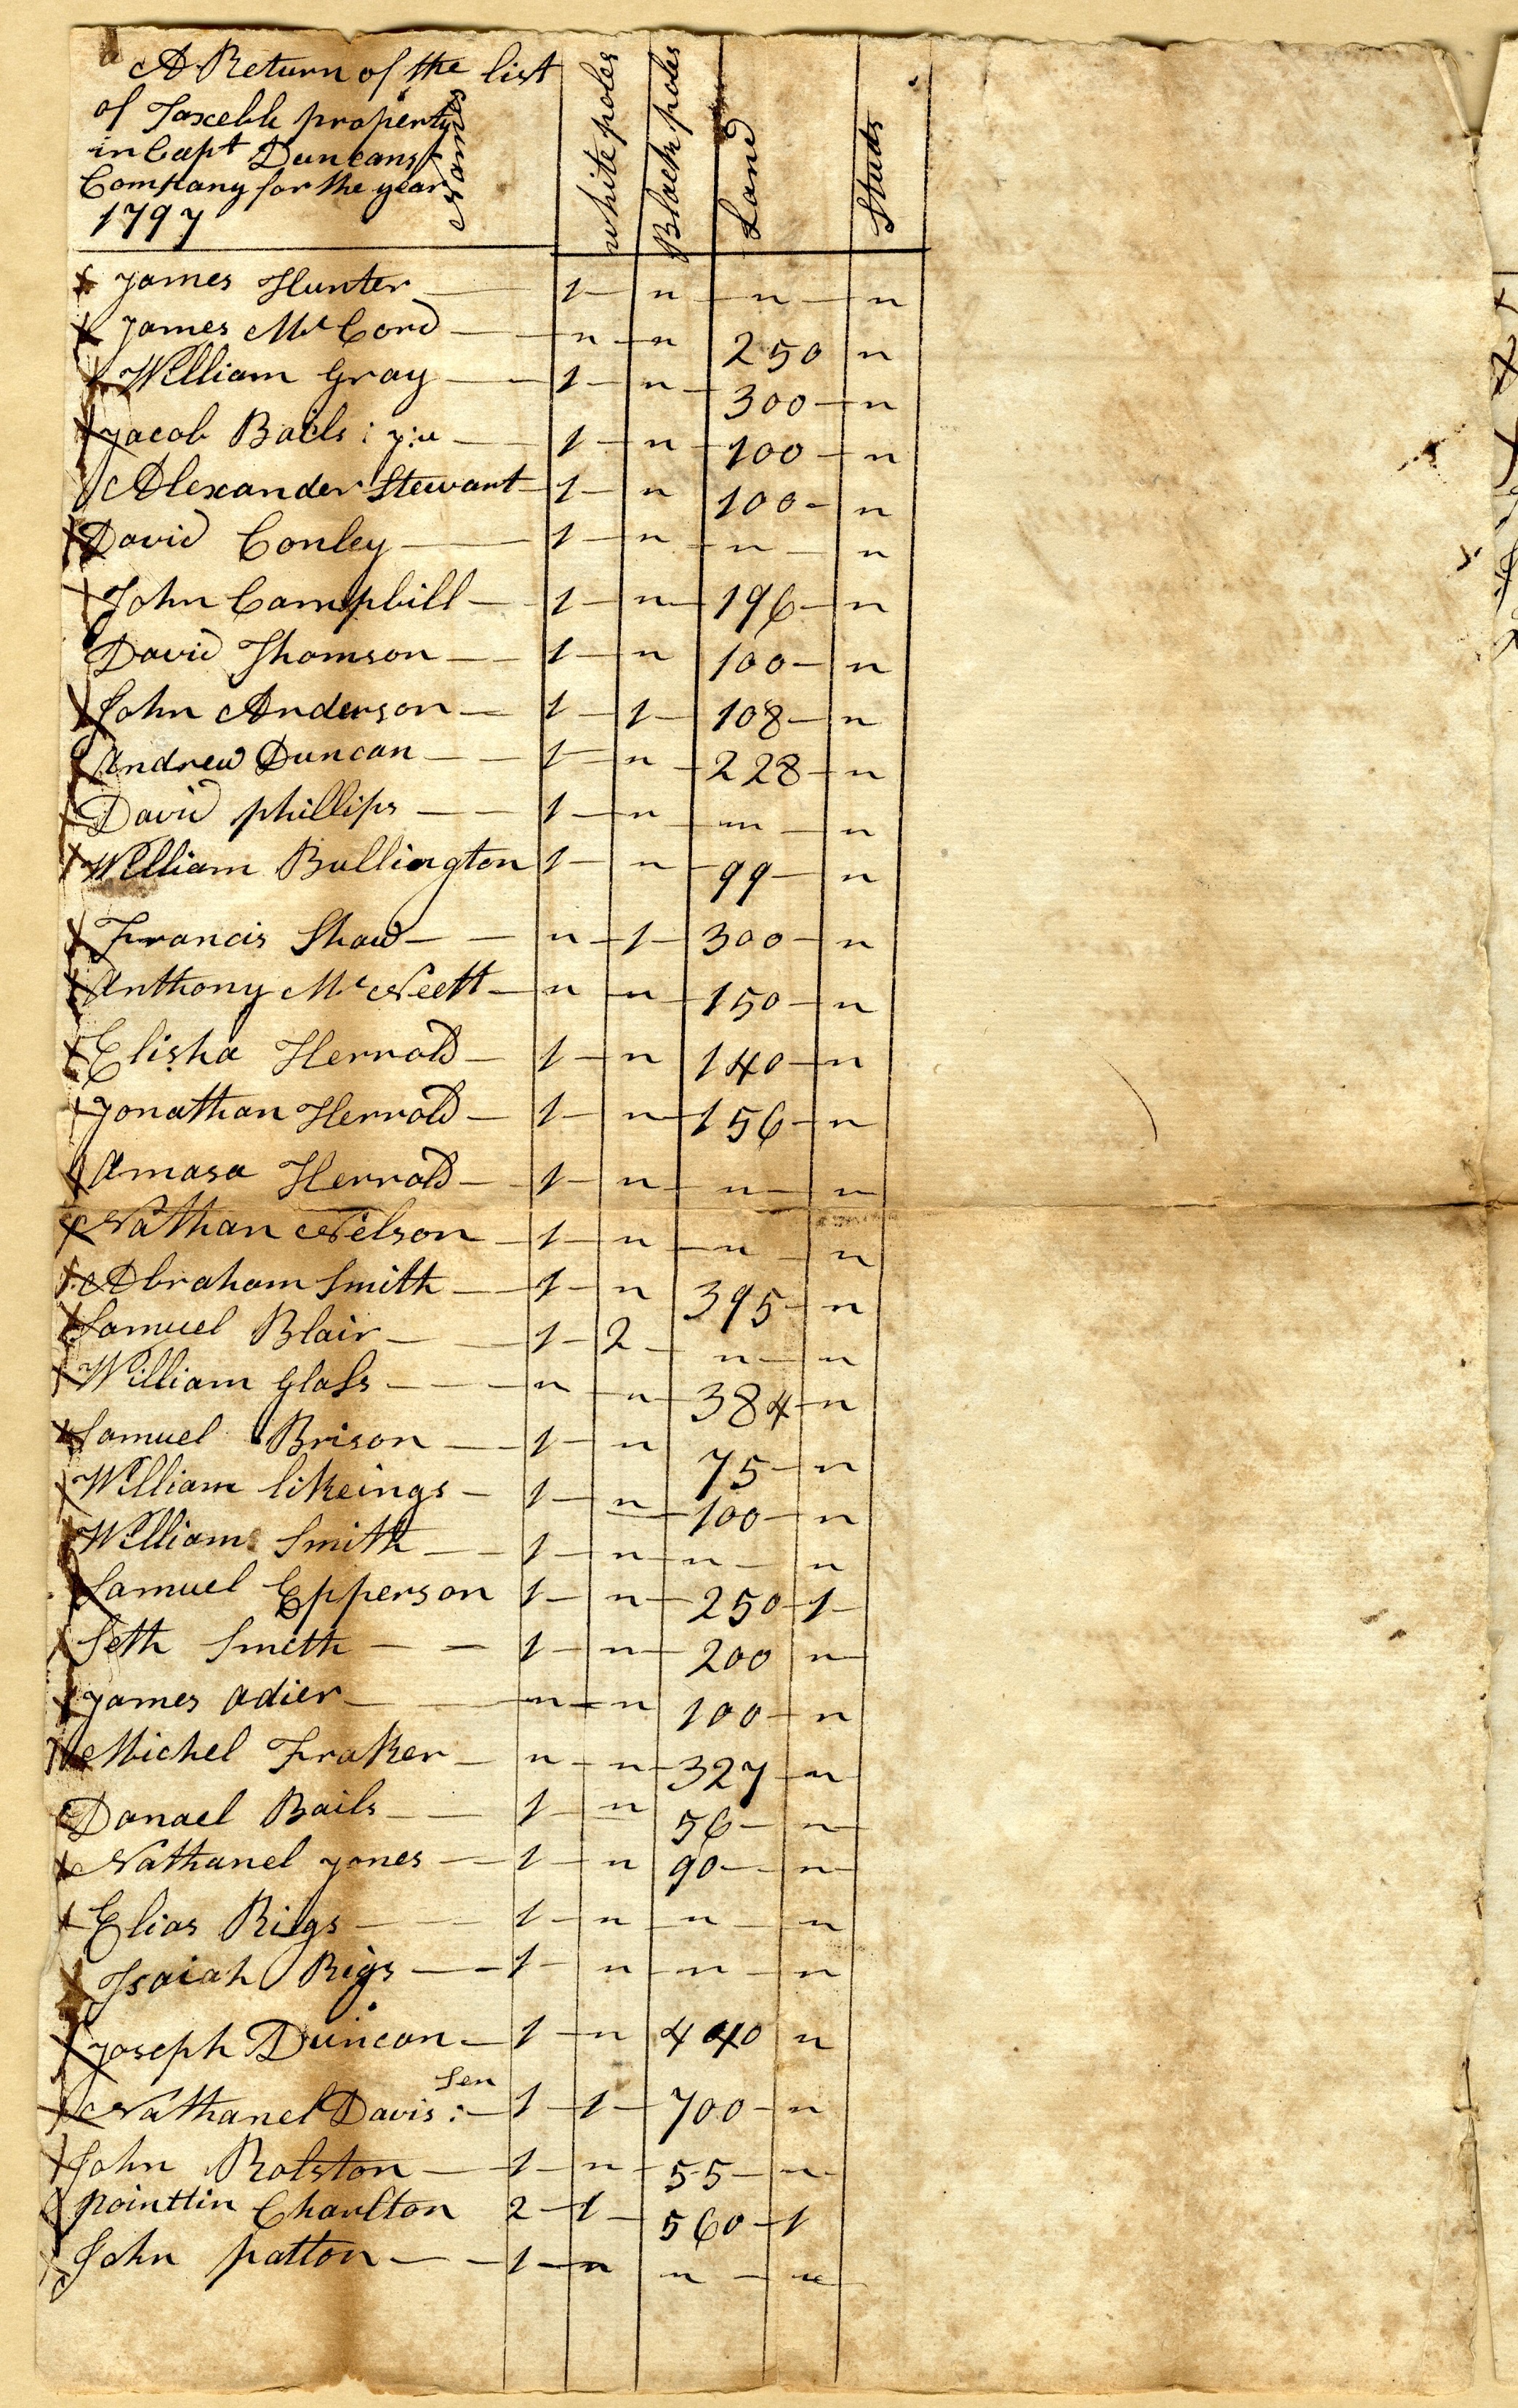 A Return of the list
of Taxeble property
in Capt Duncans
Company for the year
1797
Names
white poles
Black poles
Land
Studs
James Hunter 1 n n n
James Mc Cord n n 250 n
William Gray 1 n 300 n
Jacob Bails : 1 n 100 n
Alexander Stewart 1 n 100 n
David Conley 1 n n n
John Campbill 1 n 196 n
David Thomson 1 n 100 n
John Anderson 1 1 108 n
Andrew Duncan 1 n 228 n
David phillips 1 n n n
William Bullington 1 n 99 n
Francis Shaw n 1 300 n
Anthony Mc n n 150 n
Elisha Herrold 1 n 140 n
Jonathan Herrold 1 n 156 n
Amasa Herrold 1 n n n
Nathan Nelson 1 n n n
Abraham Smith 1 n 395 n
Samuel Blair 1 2 n n
William Glass n n 384 n
Samuel Brison 1 n 75 n
William likeings 1 n 100 n
William Smith 1 n n n
Samuel Epperson 1 n 250 1
Seth Smith 1 n 200 n
James adier n n 100 n
Michel Fraker n n 327 n
Danael Bails 1 n 56 n
Nathanel Jones 1 n 90 n
Elias Rigs 1 n n n
Isaiah Rigs 1 n n n
Joseph Duncan 1 n 440 n
Nathanel Davis : Sen 1 1 700 n
John Rolston 1 n 55 n
pointtin Charlton 2 1 560 1
John patton 1 n n n